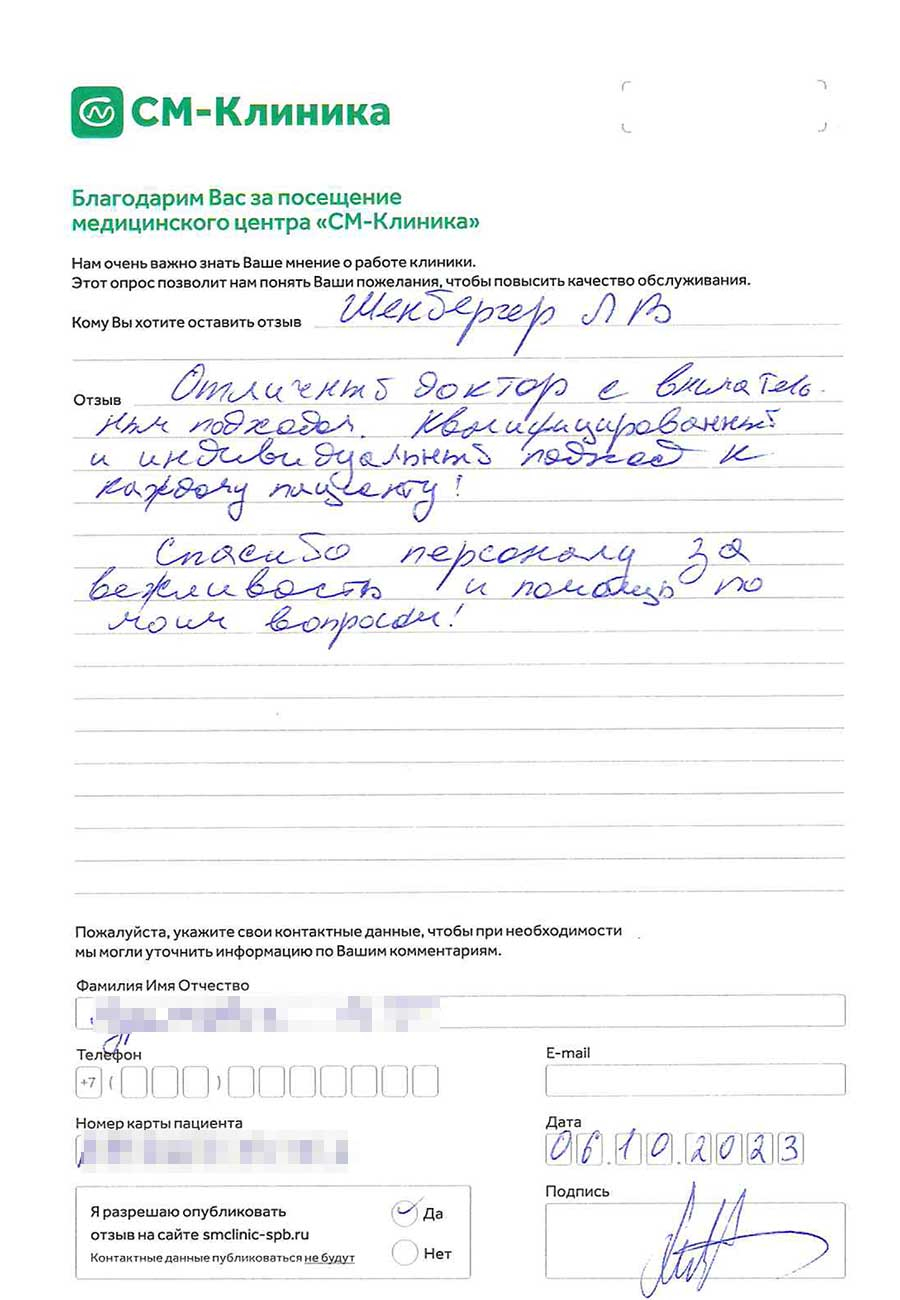 СМ-Клиника
Благодарим Вас за посещение
медицинского центра «СМ-Клиника»
Нам очень важно знать Ваше мнение о работе клиники.
Этот опрос позволит нам понять Ваши пожелания, чтобы повысить качество обслуживания.
Кому Вы хотите оставить отзыв Шенбергер Л В
Отзыв Отличный доктор с вниматель-
ным подходом. Квалифицированный
и индивидуальный подход к
каждому пациенту!
Спасибо персоналу за
вежливость и помощь по
моим вопросам!
Пожалуйста, укажите свои контактные данные, чтобы при необходимости
мы могли уточнить информацию по Вашим комментариям.
Фамилия Имя Отчество
Телефон
+7 ( )
E-mail
Номер карты пациента
Дата
06.10.2023
Я разрешаю опубликовать
отзыв на сайте smclinic-spb.ru
Контактные данные публиковаться не будут
Да
Нет
Подпись